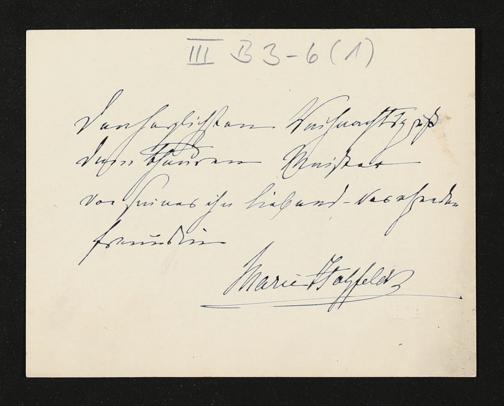 III B 3-6 (1)
Den herzlichsten Weihnachtsgruß
dem theuren Meister
von seiner ihn liebend-verehrenden
Freundin
Marie Hoyfeld